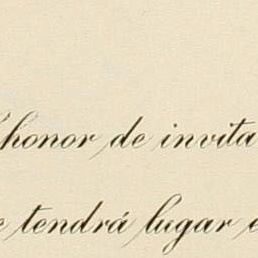 honor de invita
e tendrá lugar e